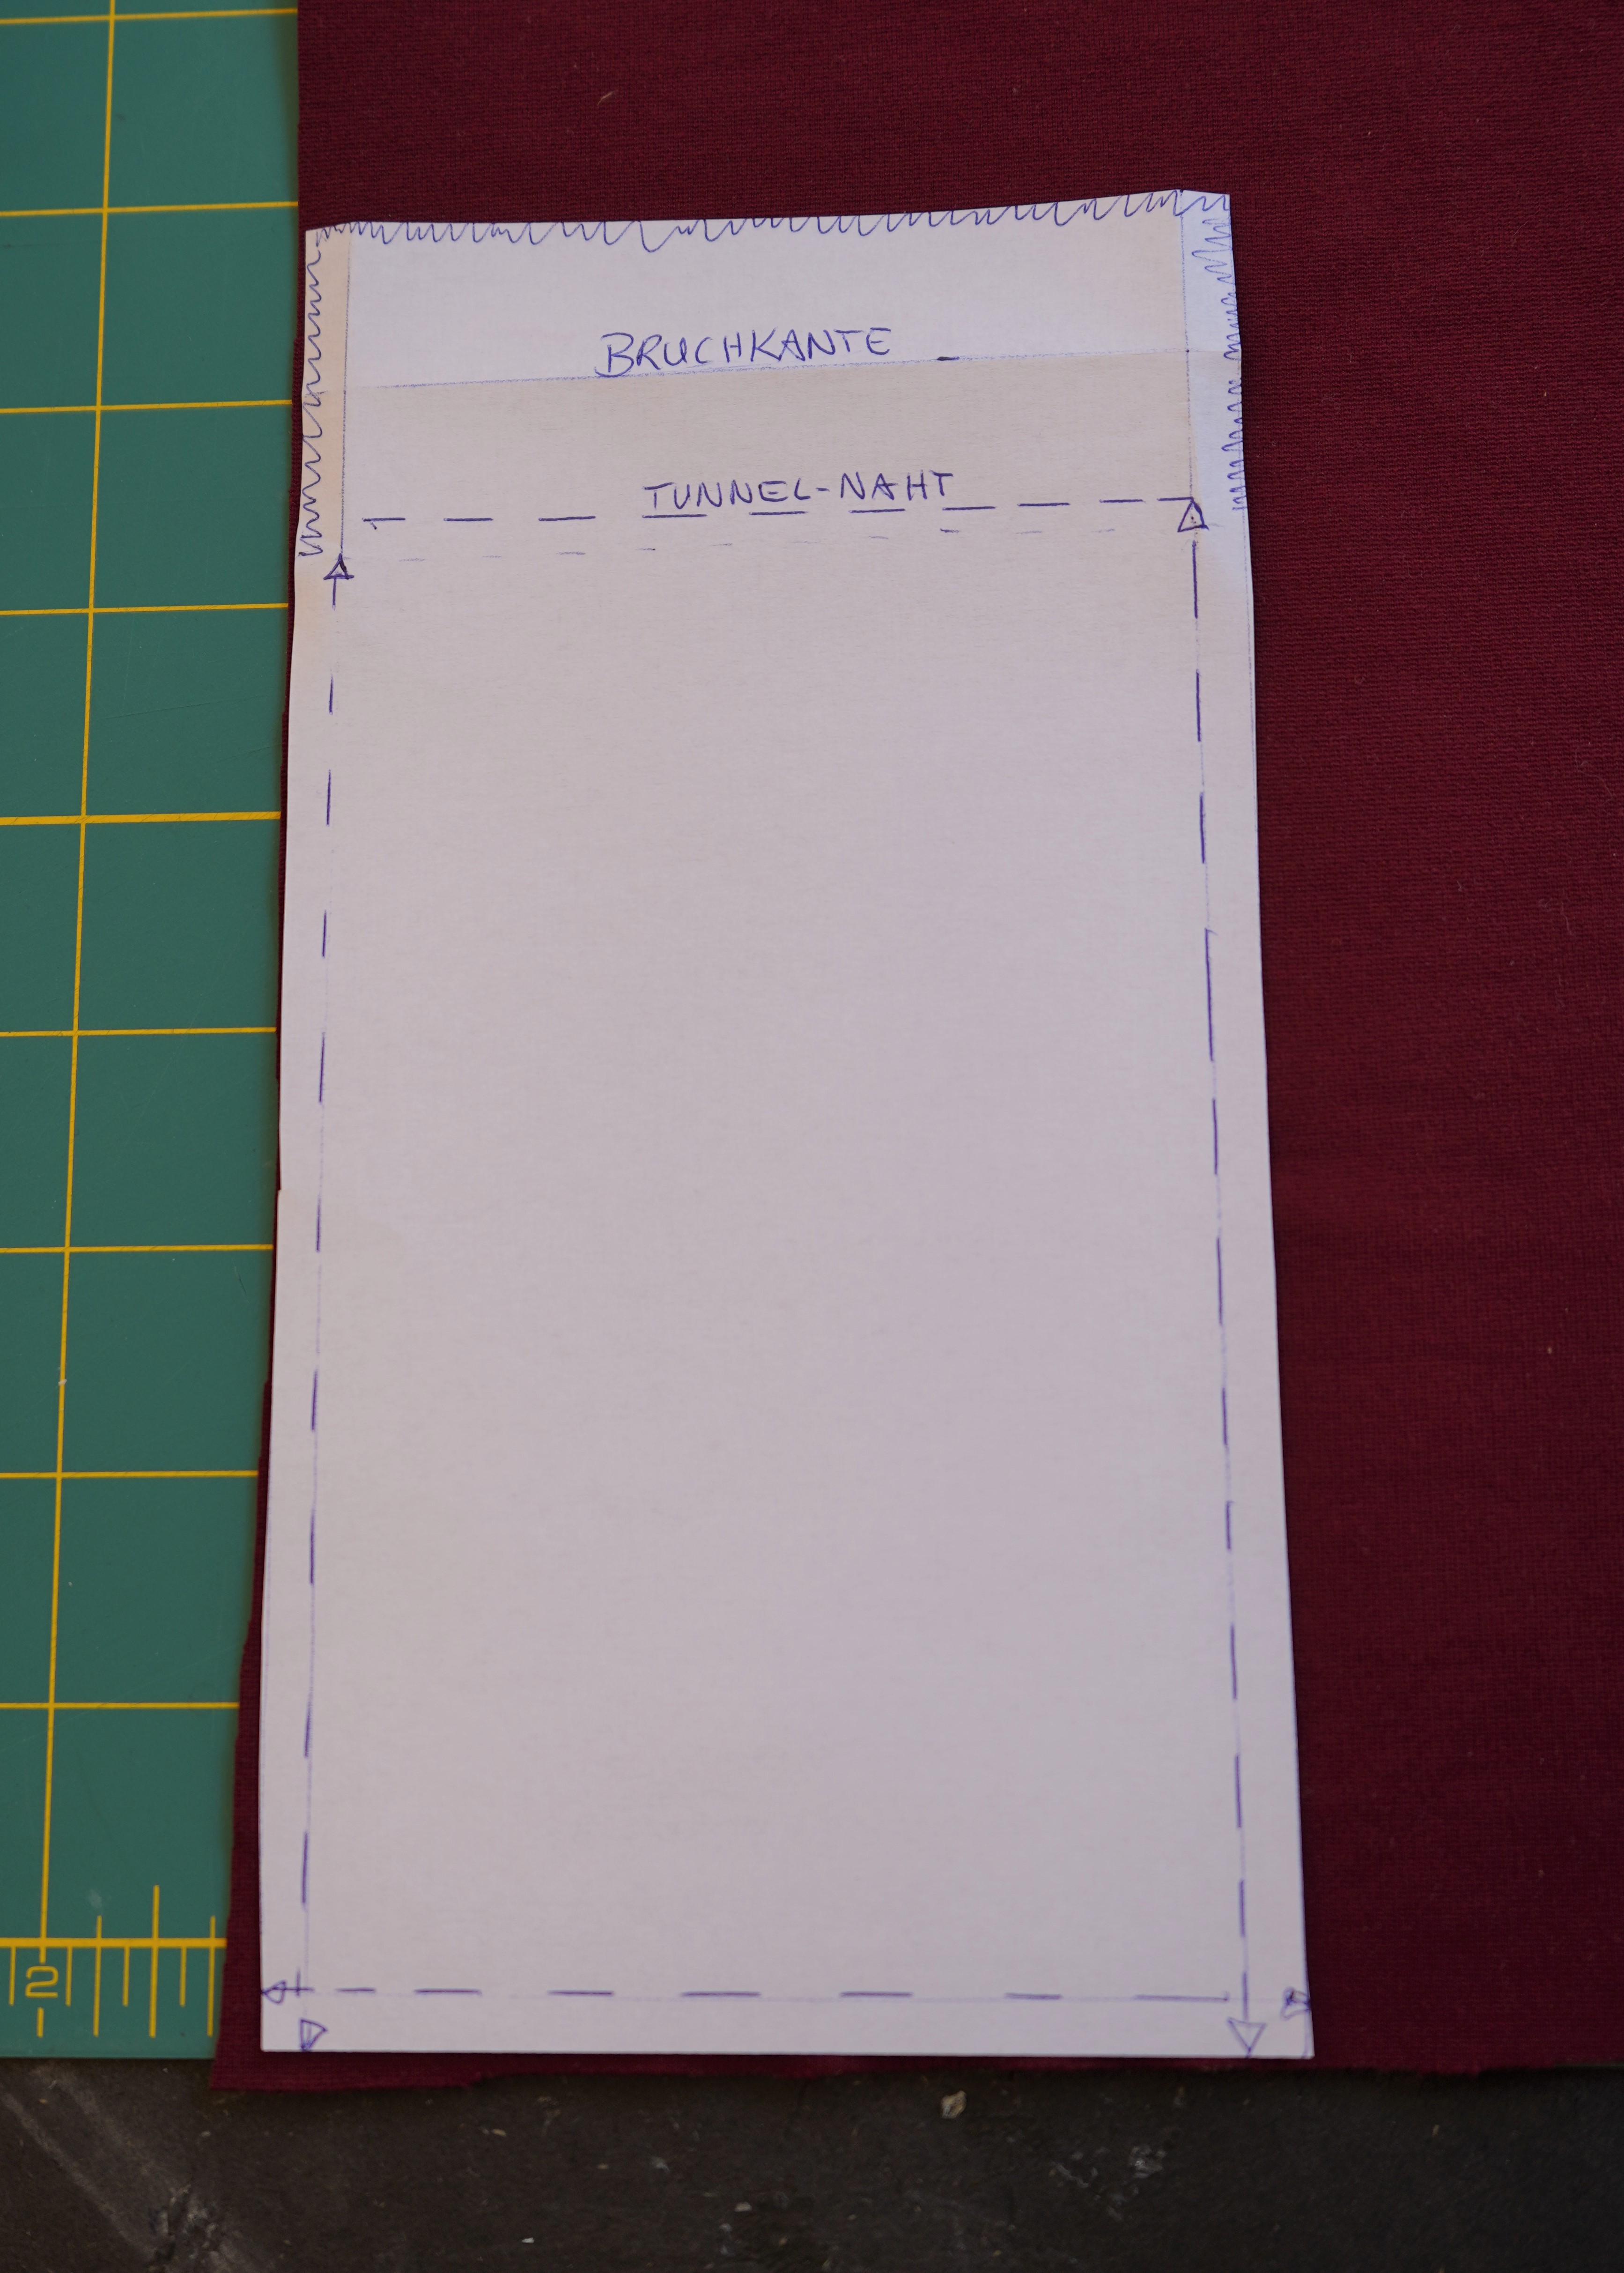 BRUCHKANTE
TUNNEL-NAHT
2